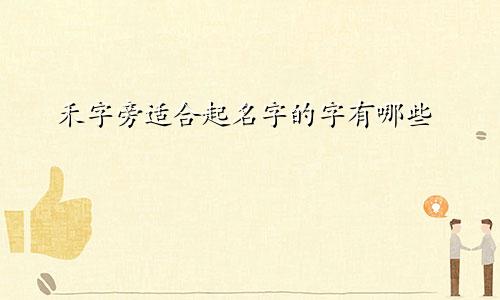 禾字旁适合起名字的字有哪些